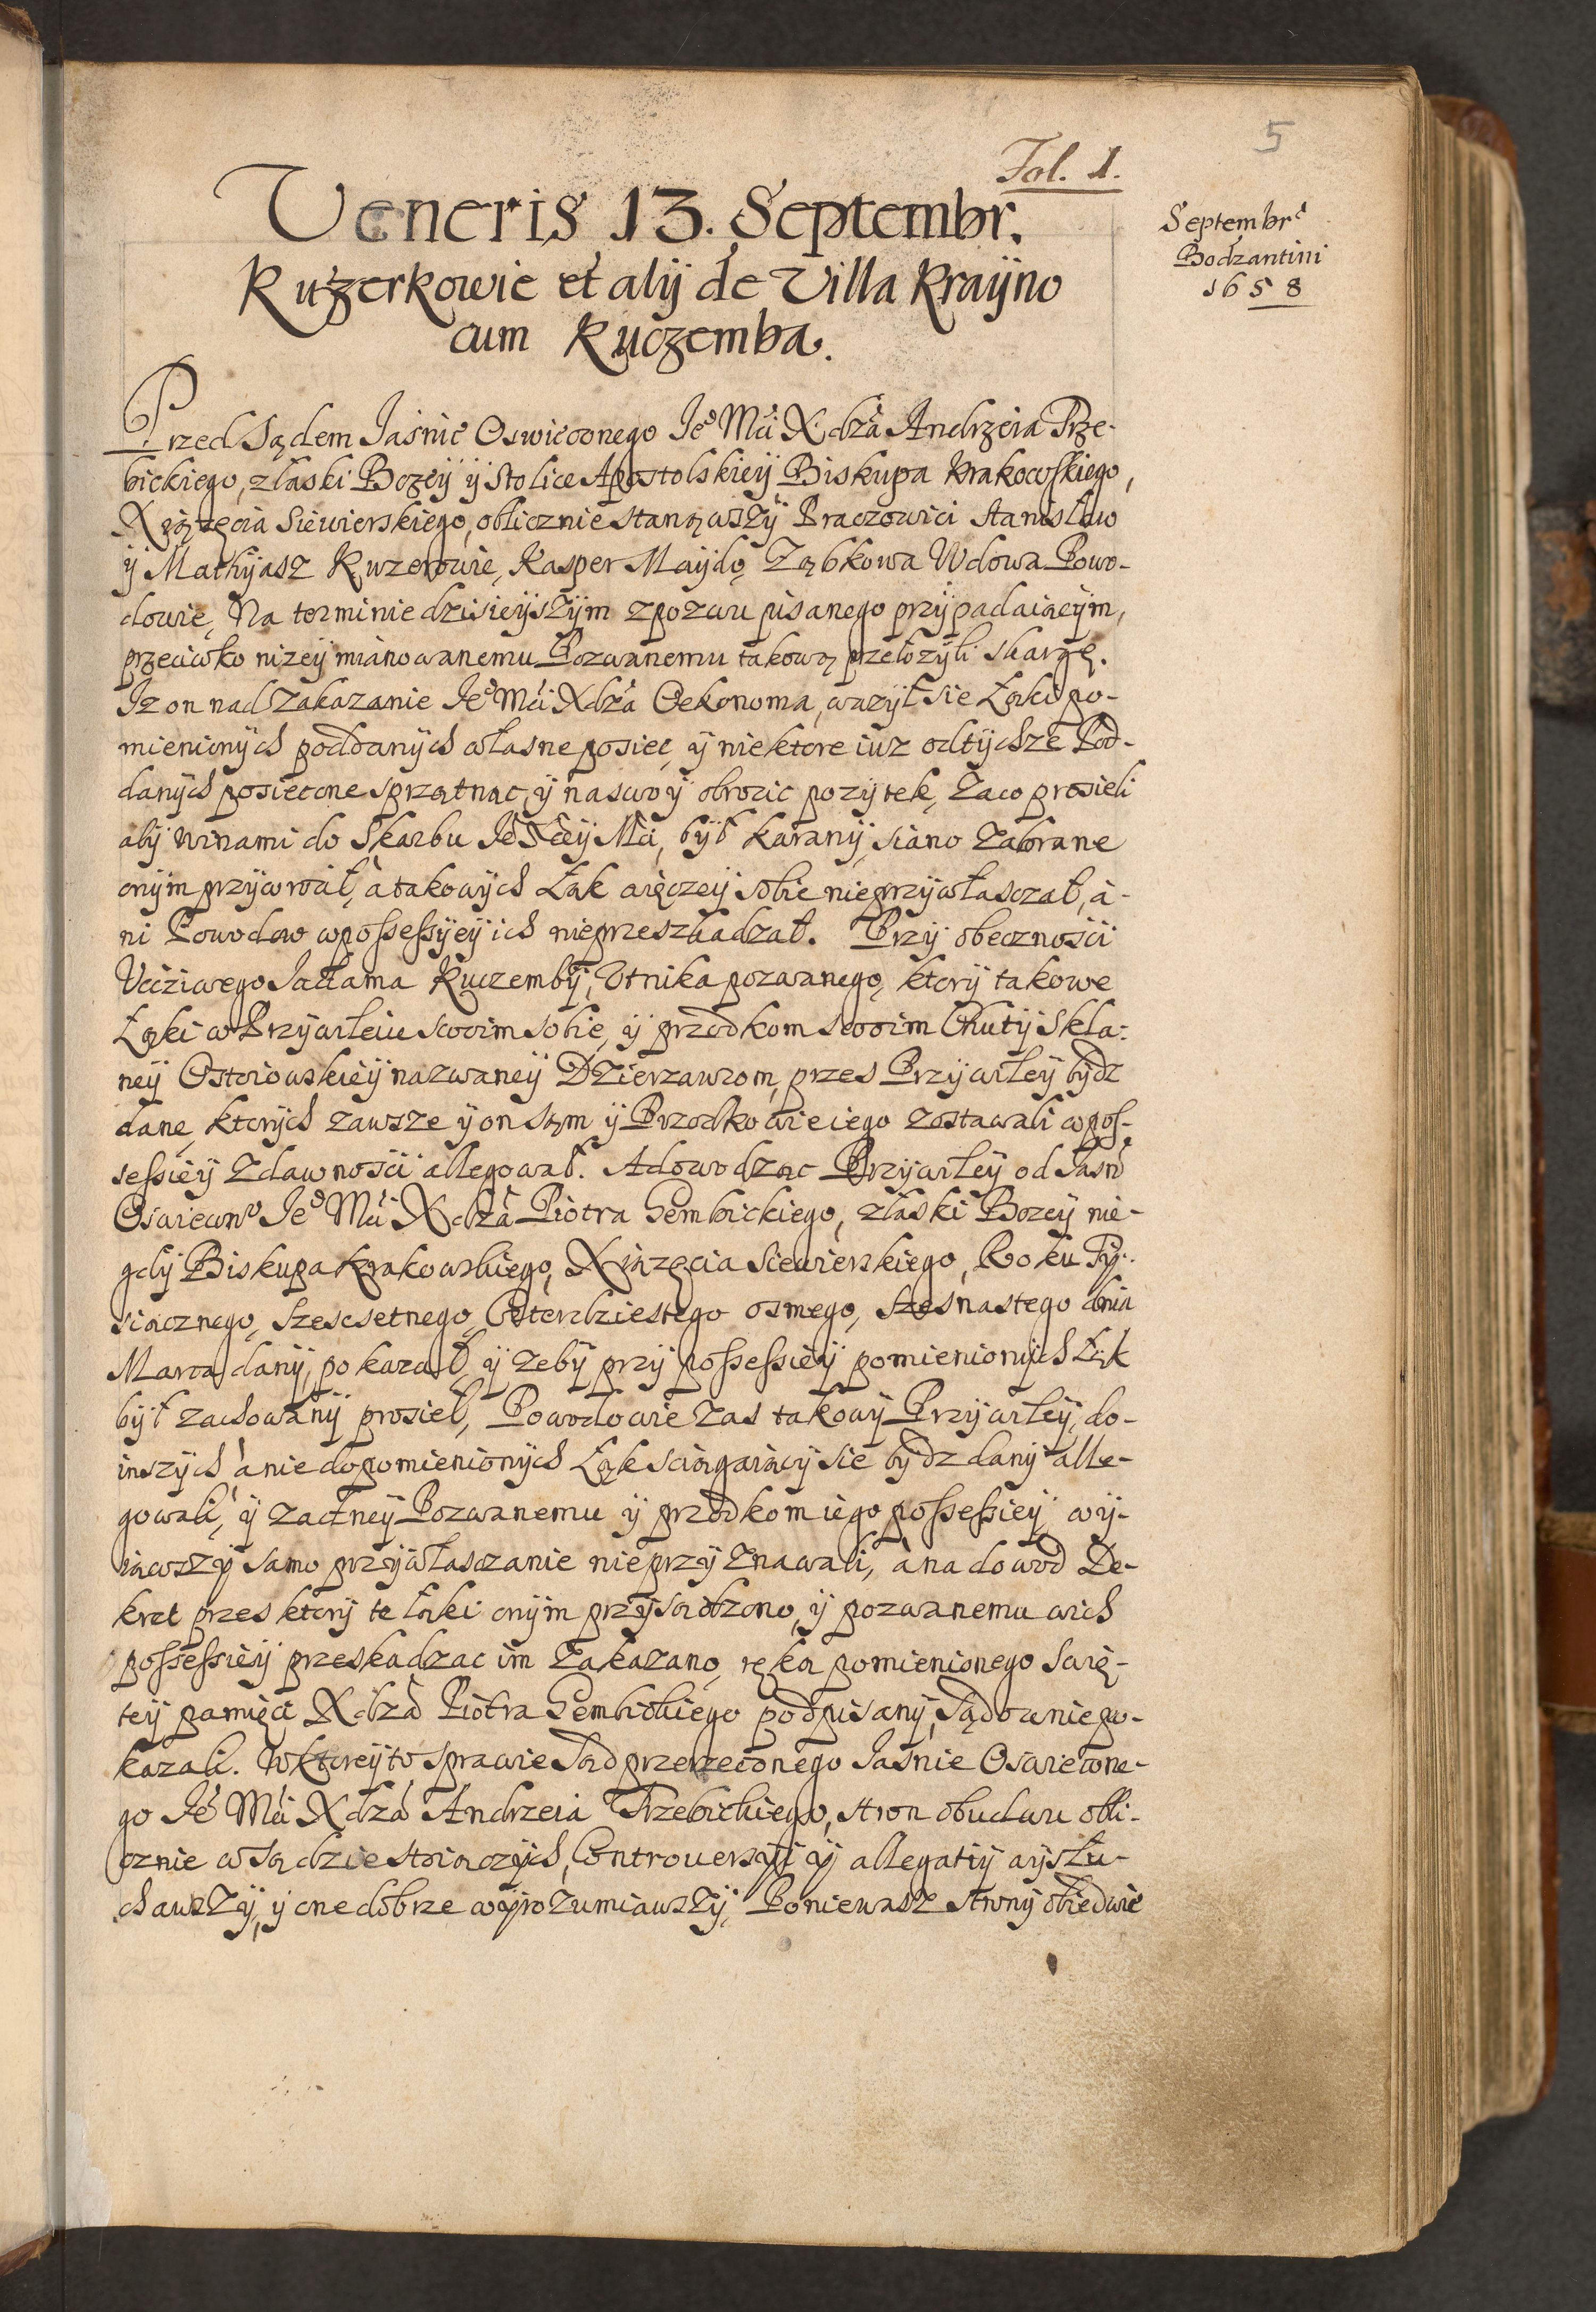 5
Fol. 1.
Veneris 13. Septembr.
Septembrs
Bodzantini
1658
Kuzerkowie et alij de Villa Kraÿno
cum Kuczemba.
Przed Sądem Jasnie Oswieconego Jeo Mci Xdza Andrzeia Trze-
bickiego, z łaski Bozeÿ ÿ Stolice Apostolskieÿ Biskupa Krakowskiego,
Xiązęcia Siewierskiego, oblicznie stanąwszÿ Praczowici Stanisław
ÿ Mathÿasz Kuzerowie, Kasper Maÿdo, Ząbkowa Wdowa Powo-
dowie, Na terminie dzisieÿszÿm z pozwu pisanego przÿpadaiącÿm,
przeciwko nizeÿ mianowanemu Pozwanemu takową przełozÿli skargę.
Iz on nad zakazanie Jeo Mci Xdza Oekonoma, wazÿł sie Łąki po-
mienionÿch poddanÿch własne posiec, ÿ niektore iuz od tÿchze Pod-
danÿch posieczone sprzątnąc, ÿ na swoÿ obrocic pozÿtek, Zaco prosieli
abÿ winami do Skarbu Je Xceÿ Mci, bÿł karanÿ, siano zabrane
onÿm przÿwrocił, a takowÿch Łąk więczeÿ sobie nieprzÿwłasczał, a-
ni Powodow w possessÿeÿ ich nieprzeszkadzał. Przÿ obecznosci
Vcciwego Jadama Kuczembÿ, Vtnika pozwanego, ktorÿ takowe
Łąki w Przÿwileiu swoim sobie, ÿ przodkom swoim Chutÿ Skla-
neÿ Ostoiowskieÿ nazwaneÿ Dzierzawcom, przes Przÿwileÿ bÿdz
dane, ktorÿch zawsze ÿ on sąm ÿ Przodkowie iego zostawali w pos-
sessieÿ z dawnosci allegował. A dowodząc Przÿwileÿ od Jasn
Oswiecono Jeo Mci Xdza Piotra Gembickiego, z łaski Bozeÿ nie-
gdÿ Biskupa Krakowskiego, Xiązęcia Siewierskiego, Roku Tÿ-
siącznego, Szescsetnego, Czterdziestego osmego, Szesnastego dnia
Marca danÿ, pokazał, ÿ zebÿ przÿ possessieÿ pomienionÿch Łąk
bÿł zachowanÿ prosieł, Powodowie zas takowÿ Przÿwileÿ, do-
inszÿch a nie do pomienionÿch Łąk sciągaiącÿ sie bÿdz danÿ alle-
gowali, ÿ zadneÿ Pozwanemu ÿ przodkom iego possessieÿ wÿ-
iąwszÿ samo przÿwłasczanie nieprzÿznawali, a na dowod De-
kret przes ktorÿ te łąki onÿm przÿsądzono, ÿ pozwanemu w ich
possessieÿ przeskadzac im zakazano, ręką pomienionego swię-
teÿ pamięci Xdza Piotra Gembickiego podpisanÿ, sądownie po-
kazali. W ktoreÿ to sprawie Sąd przerzeczonego Jasnie Oswiecone-
go Jeo Mci Xdza Andrzeia Trzebickiego, stron obudwu obli-
cznie w sądzie stoiączÿch, Controuersÿi ÿ allegatiÿ wÿsłu-
chawszÿ, ÿ one dobrze wÿrozumiawszÿ, Poniewasz stronÿ obiedwie